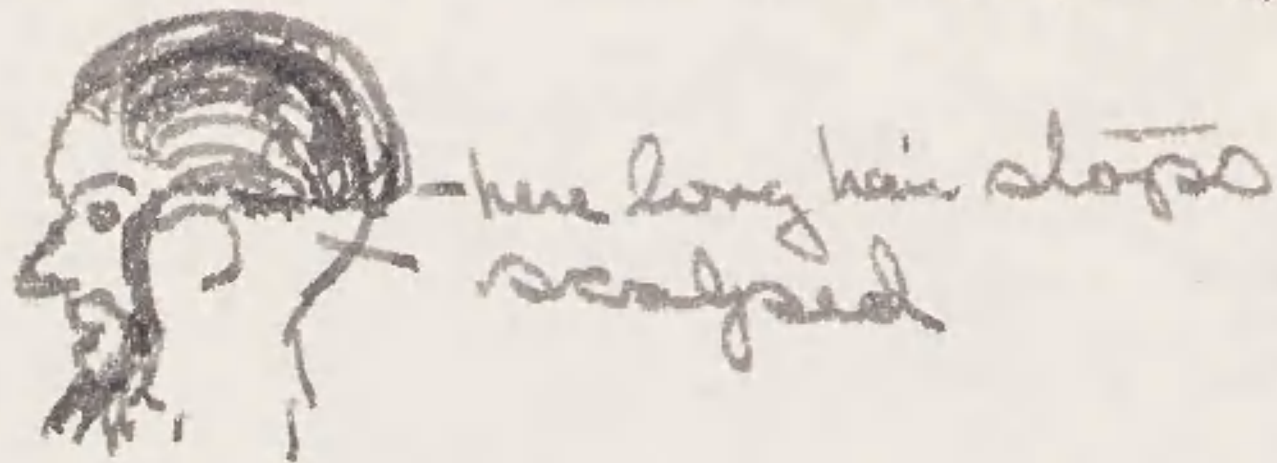 here long hair stops
scalped